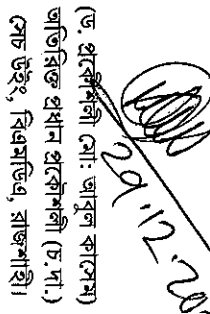 29.12.20
(ড. প্রকৌশলী মোঃ আবুল কাসেম)
অতিরিক্ত প্রধান প্রকৌশলী (চ.দা.)
সেচ উইং, বিএমডিএ, রাজশাহী।